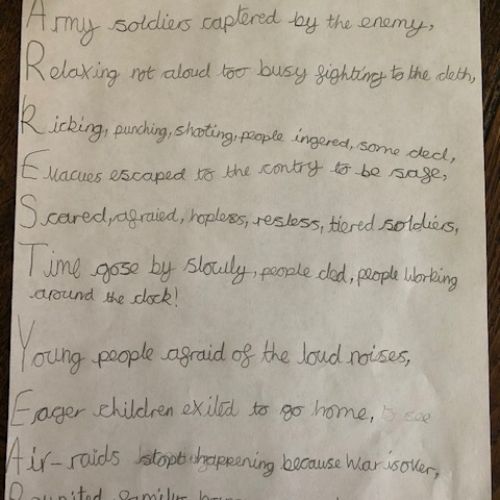 Army soldiers captered by the enemy,
Relaxing not aloud too busy fighting to the deth,
Kicking, punching, shooting, people ingered, some ded,
Evacues escaped to the contry to be safe,
Scared, afraied, hopless, resless, tiered soldiers,
Time gose by slowly, people ded, people working
around the clock!
Young people afraid of the loud noises,
Eager children exited to go home,
Air-raids stopt happening because war is over,
Reunited familys